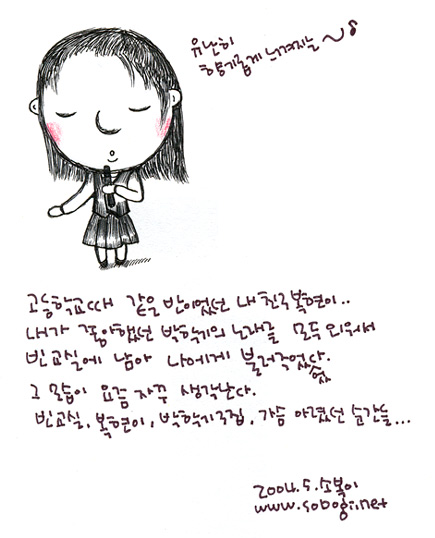 유난히
향기롭게 느껴지는~
고등학교때 같은 반이었던 내친구 복현이..
내가 좋아했던 박학기의 노래를 모두 외워서
빈교실에 남아 나에게 불러주었다.
그 모습이 요즘 자꾸 생각난다.
빈교실, 복현이, 박학기노래, 가슴 아렸던 순간들...
2004.5.소복이
www.sobogi.net